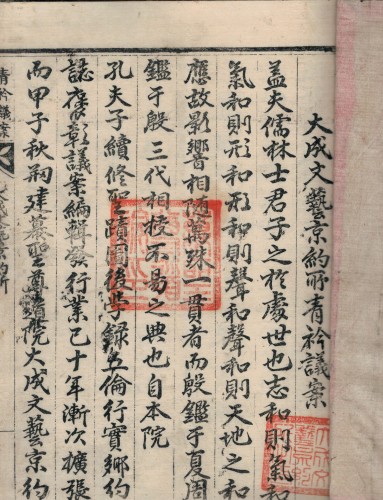 大成文藝京約所青衿議案
盖夫儒林士君子之於處世也志和則氣和
氣和則形和形和則聲和聲和則天地之和
應故影響相随萬殊一貫者而殷鑑于夏周
鑑于殷三代相授不易之典也自本院
孔夫子續修聖蹟圖後學録五倫行實鄉約
誌褒彰議案編輯發行業已十年漸次擴張
而甲子秋刱建慕聖道院大成文藝京約
青衿議案